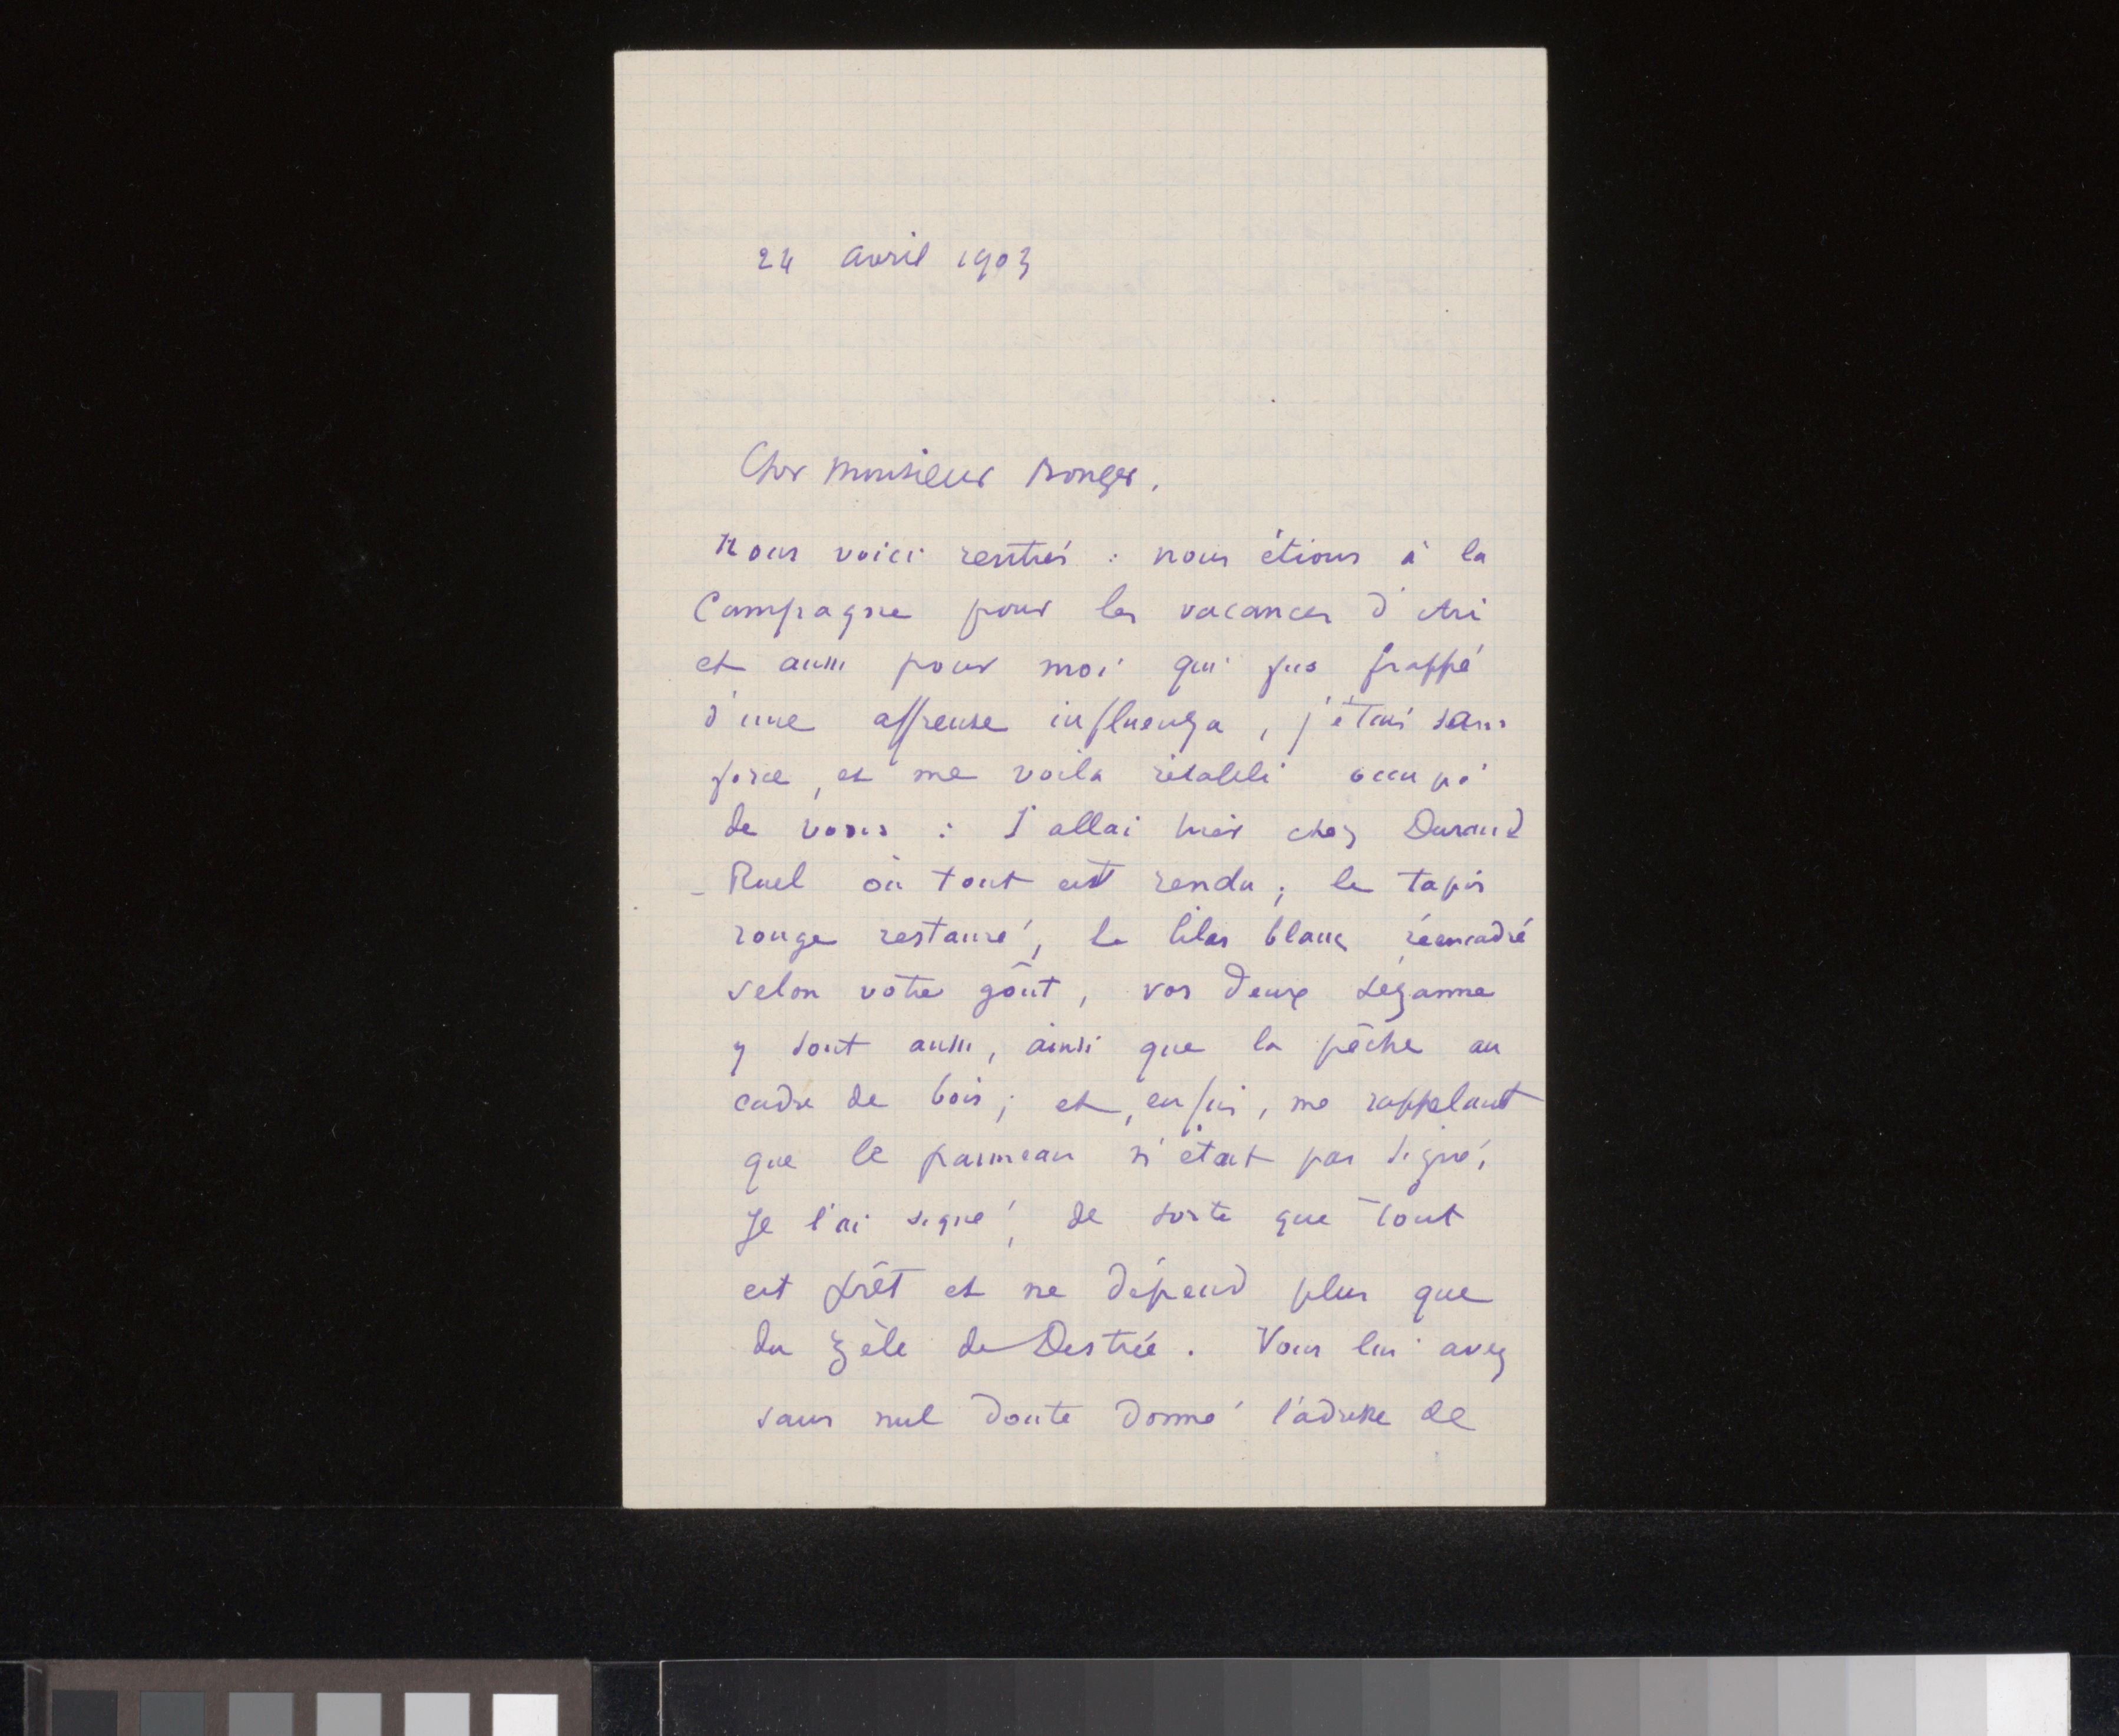 24 avril 1903
Cher Monsieur Bonger,
Nous voici rentrés : nous étions à la
Campagne pour les vacances d'Ari
et aussi pour moi qui fus frappé
d'une affreuse influenza, j'étais sans
force, et me voila rétabli occupé
de vous : J'allai hier chez Durand
-Ruel où tout est rendu ; le tapis
rouge restauré, le lilas blanc réencadré
selon votre goût, vos deux Cézanne
y sont aussi, ainsi que la pêche au
cadre de bois ; et, enfin, me rappelant
que le panneau n'était pas signé,
Je l'ai signé, de sorte que tout
est prêt et ne dépend plus que
du zèle de Destrée. Vous lui avez
sans nul doute donné l'adresse de